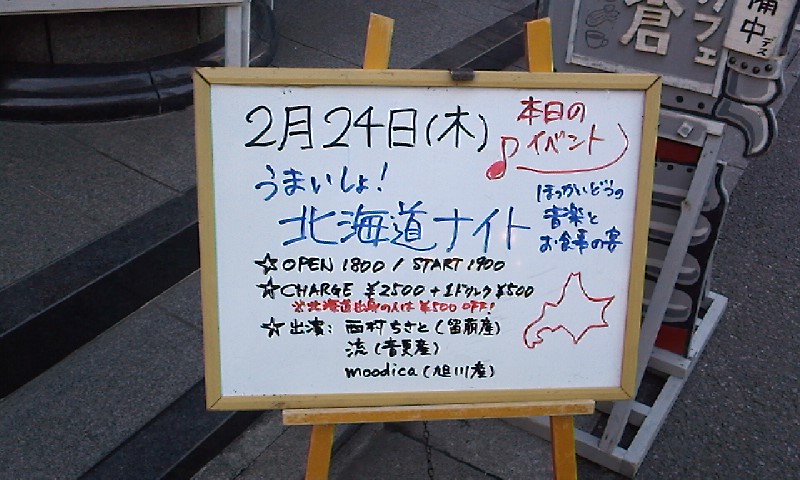 2月24日(木)
本日の
イベント
うまいしょ!
北海道ナイト
ほっかいどうの
音楽と
お食事の宴
☆OPEN 1800 / START 1900
☆CHARGE ¥2500+1ドリンク¥500
※北海道出身の人は¥500 OFF!
☆出演: 西村ちさと(留萌産)
流(音更産)
moodica(旭川産)
カフェ
倉
備中
デス